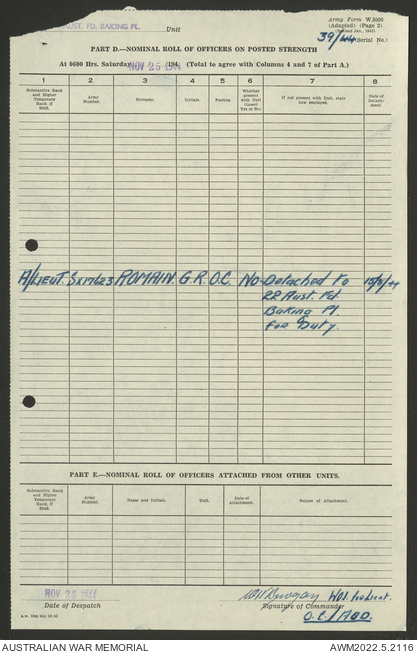 AUST. FD. BAKING PL.
Unit
Army Form W.3008
(Adapted) (Page 2)
39/44 (Serial No.)
PART D.—NOMINAL ROLL OF OFFICERS ON POSTED STRENGTH
At 0600 Hrs. Saturday NOV 25 1944 194 (Total to agree with Columns 4 and 7 of Part A.)
1 2 3 4 5 6 7 8
Substantive Rank and Higher Temporary Rank if Held.
Army Number.
Surname.
Initials.
Posting.
Whether present with Unit (insert Yes or No)
If not present with Unit, state how employed.
Date of Detachment.
A/LIEUT. SX17623 ROMAIN. G.R. O.C. NO- Detached to
Aust. Fd.
Baking Pl.
for Duty.
PART E.—NOMINAL ROLL OF OFFICERS ATTACHED FROM OTHER UNITS.
Substantive Rank and Higher Temporary Rank if Held.
Army Number.
Name and Initials.
Unit.
Date of Attachment.
Nature of Attachment.
NOV 25 1944
Date of Despatch
Signature of Commander
O.C./
AUSTRALIAN WAR MEMORIAL
AWM2022.5.2116